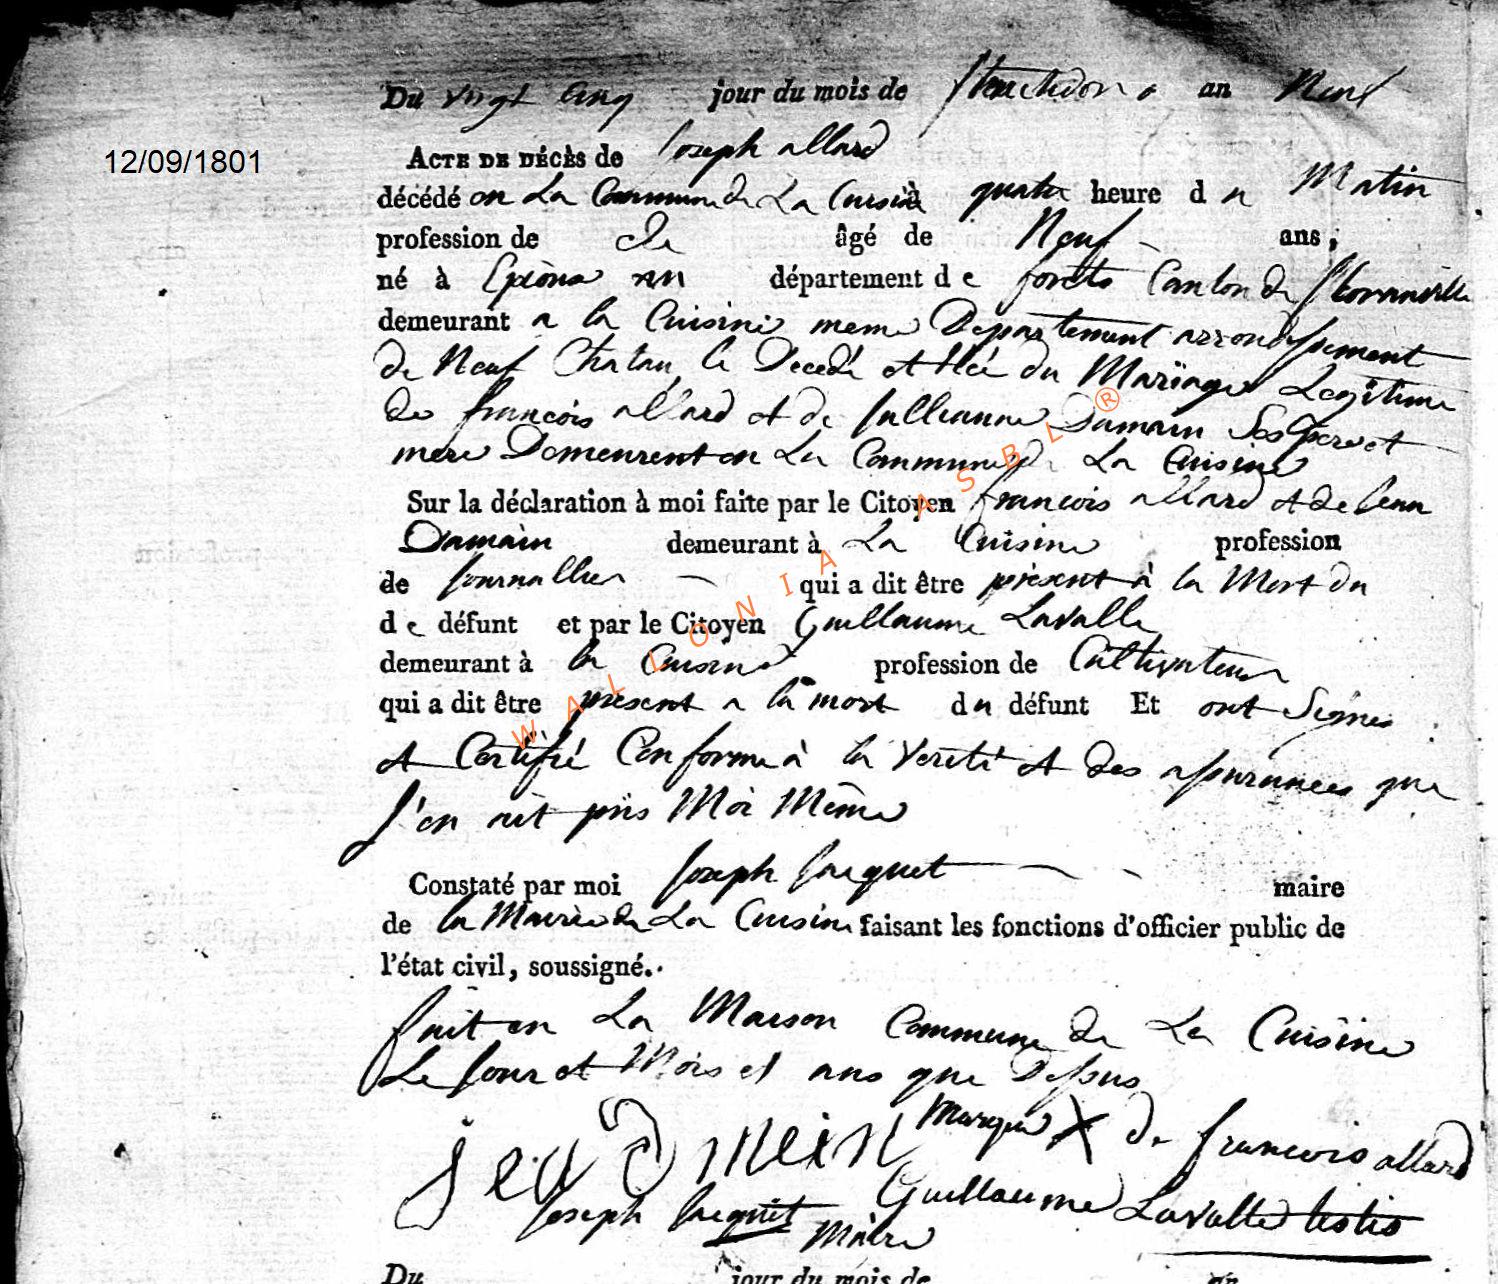 Du vingt cinq jour du mois de fructidor an Neuf
12/09/1801
ACTE DE DÉCÈS de Joseph allard
décédé en La Commune de La Cuisine à quatre heure du Matin
profession de de âgé de Neuf ans ;
né à département de forêts Canton de floranville
demeurant a la Cuisine meme Departement arrondissement
de Neuf Chatau, le Decedé et Née du Mariage Legitime
de francois allard et de Julleanne Damain Ses pere et
mere Demeurent en La Commune de La Cuisine
Sur la déclaration à moi faite par le Citoyen francois allard et de Jean
Damain demeurant à La Cuisine profession
de Journallier qui a dit être présent à la Mort du
de défunt et par le Citoyen Guillaume Lavalle
demeurant à la Cuisine profession de Cultivateur
qui a dit être present a la mort du défunt Et ont Signés
et Certifié Conforme à la Verité et des assurances que
J'en ait pris Moi Même
Constaté par moi Joseph Jacquet maire
de la Mairie de La Cuisine faisant les fonctions d'officier public de
l'état civil, soussigné.
fait en La Maison Commune de La Cuisine
Le Jour et Mois et ans que Dessus
Marque X de francois allard
jea damein
Guillaume Lavalle
Joseph Jacquet
Maire
Du jour du mois de an
WALLONIA ASBL ®